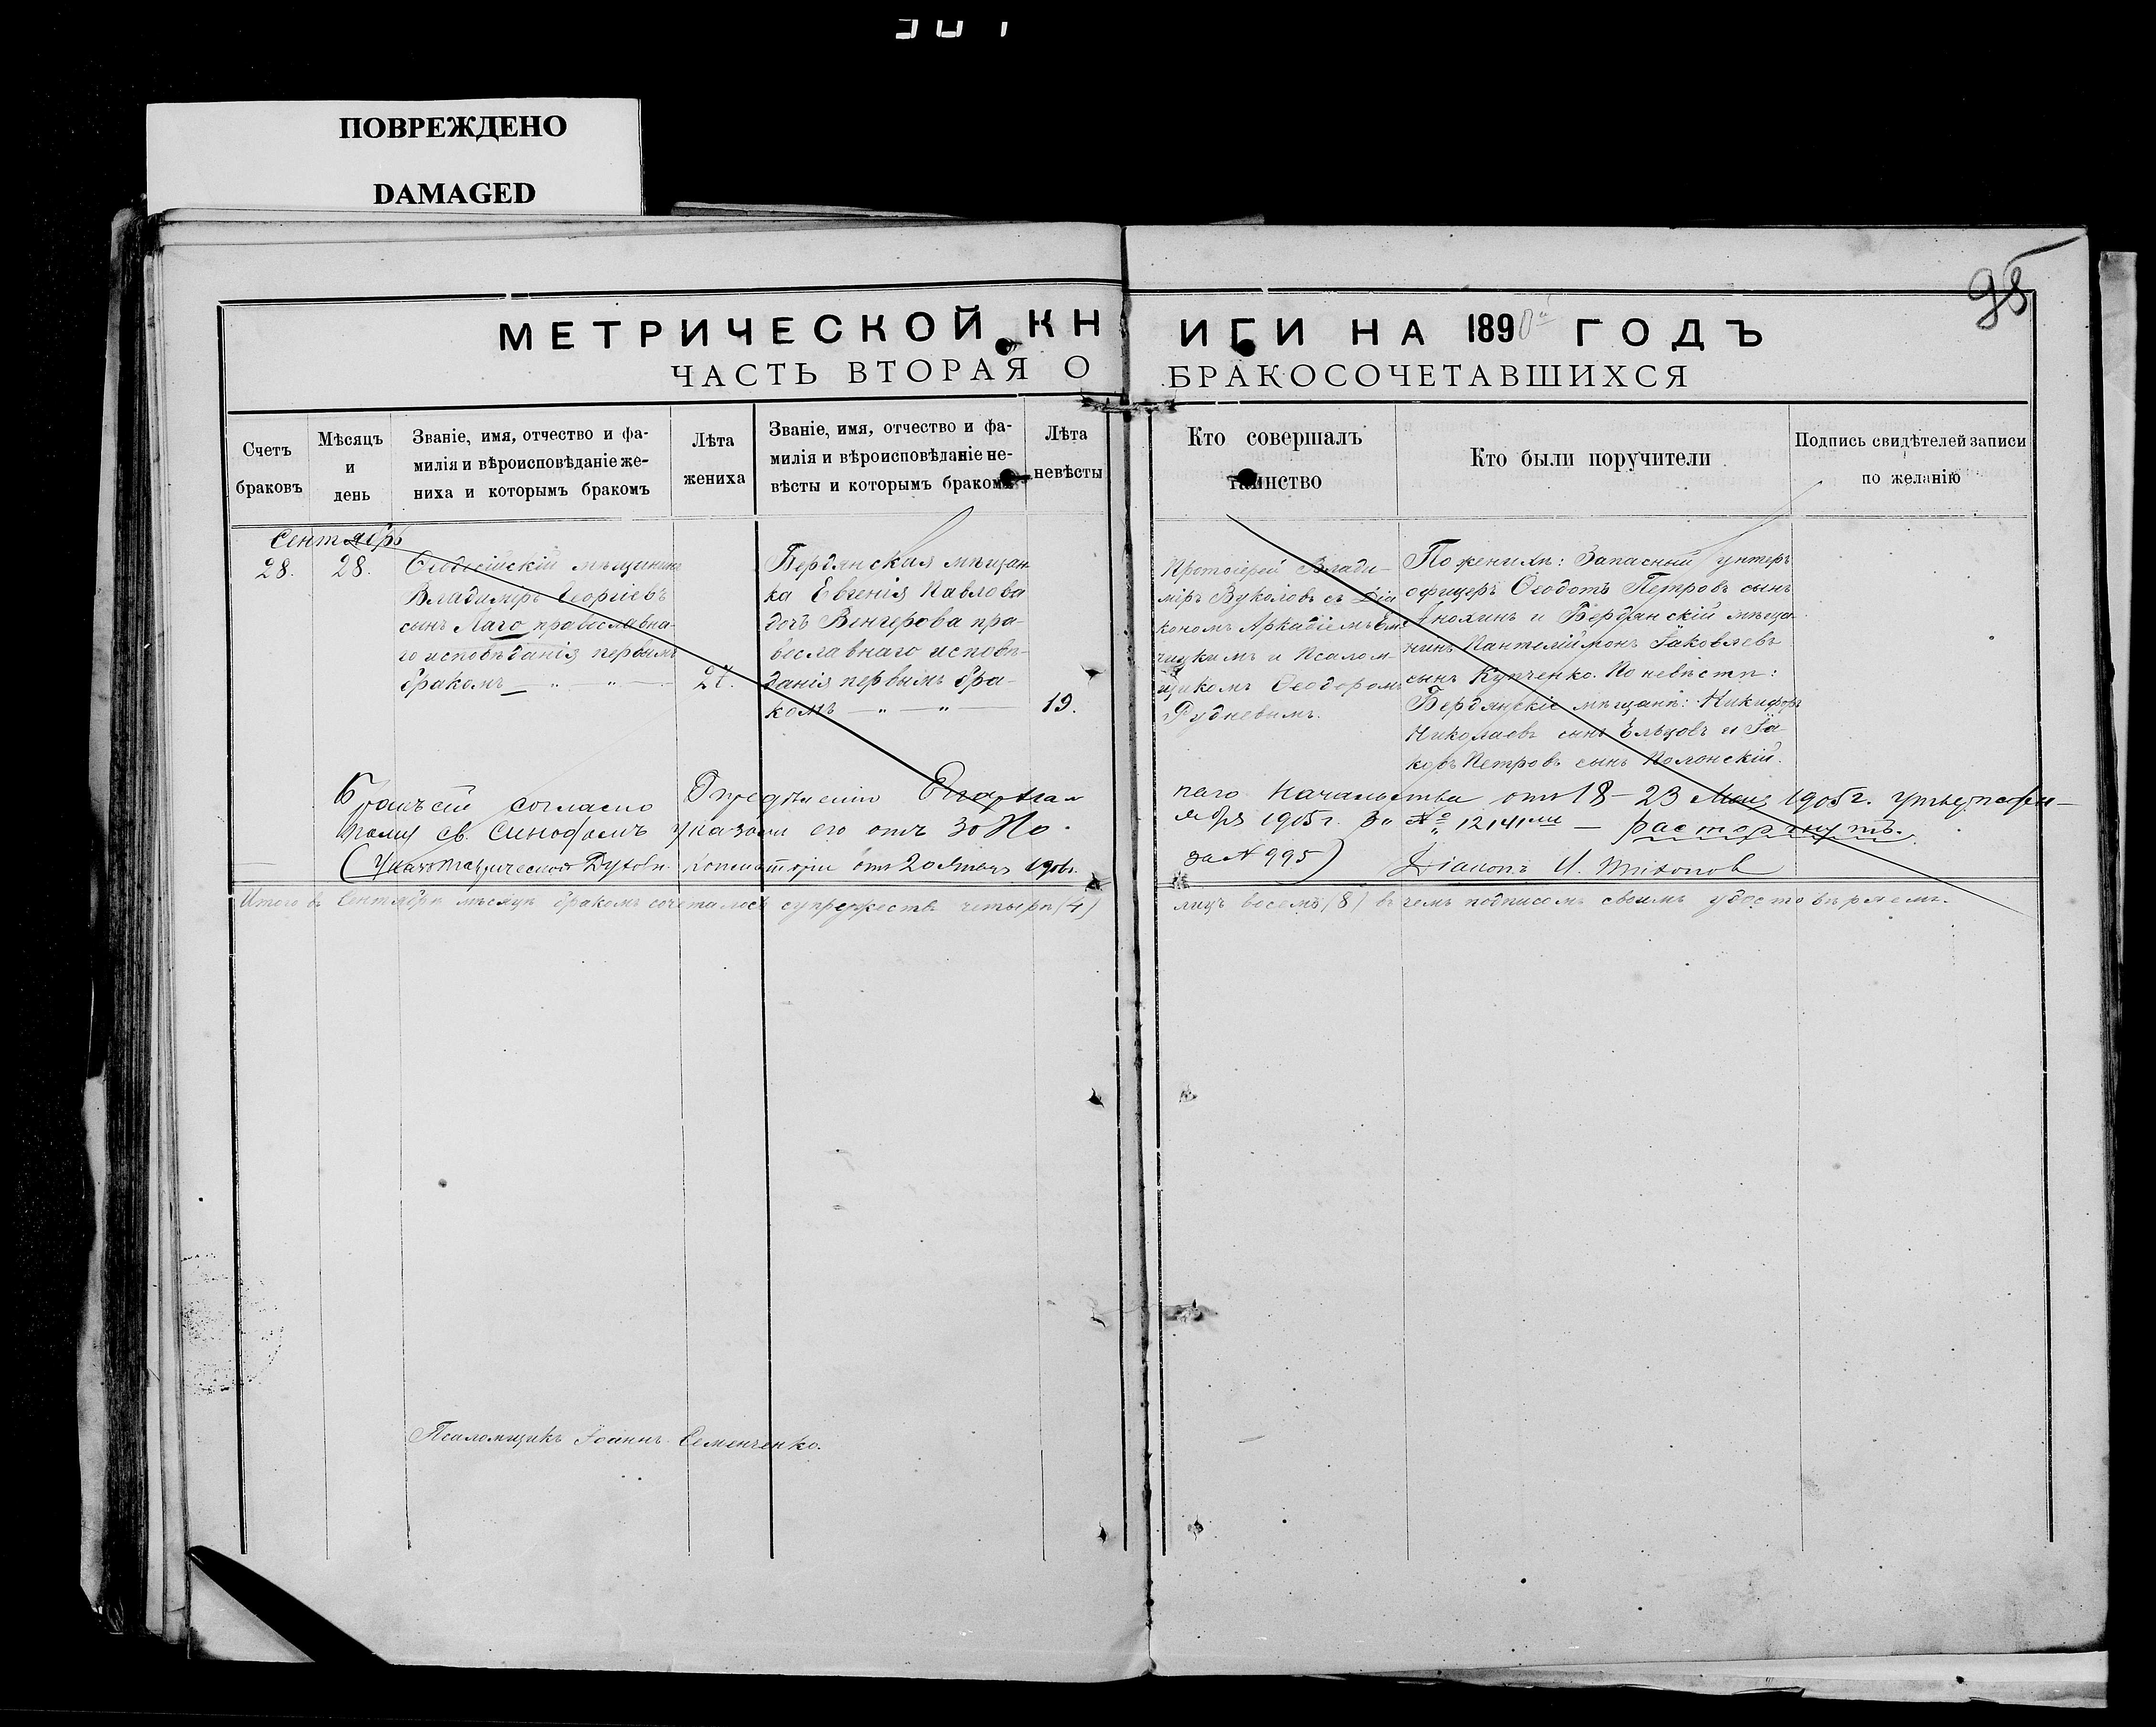 ПОВРЕЖДЕНО
DAMAGED
98
МЕТРИЧЕСКОЙ КНИГИ НА 1890й ГОДЪ
ЧАСТЬ ВТОРАЯ О БРАКОСОЧЕТАВШИХСЯ
Счетъ
браковъ
Мѣсяцъ
и
день
Званіе, имя, отчество и фа-
милія и вѣроисповѣданіе же-
ниха и которымъ бракомъ
Лѣта
жениха
Званіе, имя, отчество и фа-
милія и вѣроисповѣданіе не-
вѣсты и которымъ бракомъ
Лѣта
невѣсты
Кто совершалъ
таинство
Кто были поручители
Подпись свидѣтелей записи
по желанію
Сентябрь
28.
28.
Ѳеодосійскій мѣщанинъ
Владиміръ Георгіевъ
сынъ Лаго православна-
го исповѣданія первымъ
бракомъ
27.
Бердянская мѣщан-
ка Евгенія Павлова
дочь Венгерова пра-
вославнаго исповѣ-
данія первымъ бра-
комъ
19.
Протоіерей Влади-
міръ Вуколовъ съ Діа
кономъ Аркадіемъ
и Псалом-
щикомъ Ѳеодоромъ
Рудневымъ.
По женихѣ: Запасный унтеръ
офицеръ Ѳеодотъ Петровъ сынъ
Анохинъ и Бердянскій мѣща-
нинъ Пантелеймонъ Іаковлевъ
сынъ Купченко. По невѣстѣ:
Бердянскіе мѣщане: Никифоръ
Николаевъ сынъ Ельцовъ и Іа-
ковъ Петровъ сынъ Полонскій.
Бракъ сей согласно Опредѣленію Епархіал
наго Начальства отъ 18-23 Мая 1905 г. утвержден-
ному св. Синодомъ указомъ его отъ 30 Но-
ября 1905 г. за № 12141 — расторгнутъ.
(Указъ Таврической Духовн. консисторіи отъ 20 1906.
за № 995) Діаконъ И. Тихоновъ
Итого въ Сентябрѣ мѣсяцѣ бракомъ сочеталось супружествъ четыре (4)
лицъ восемь (8) въ чемъ подписомъ своимъ удостовѣряемъ.
Псаломщикъ Іоаннъ Семенченко.